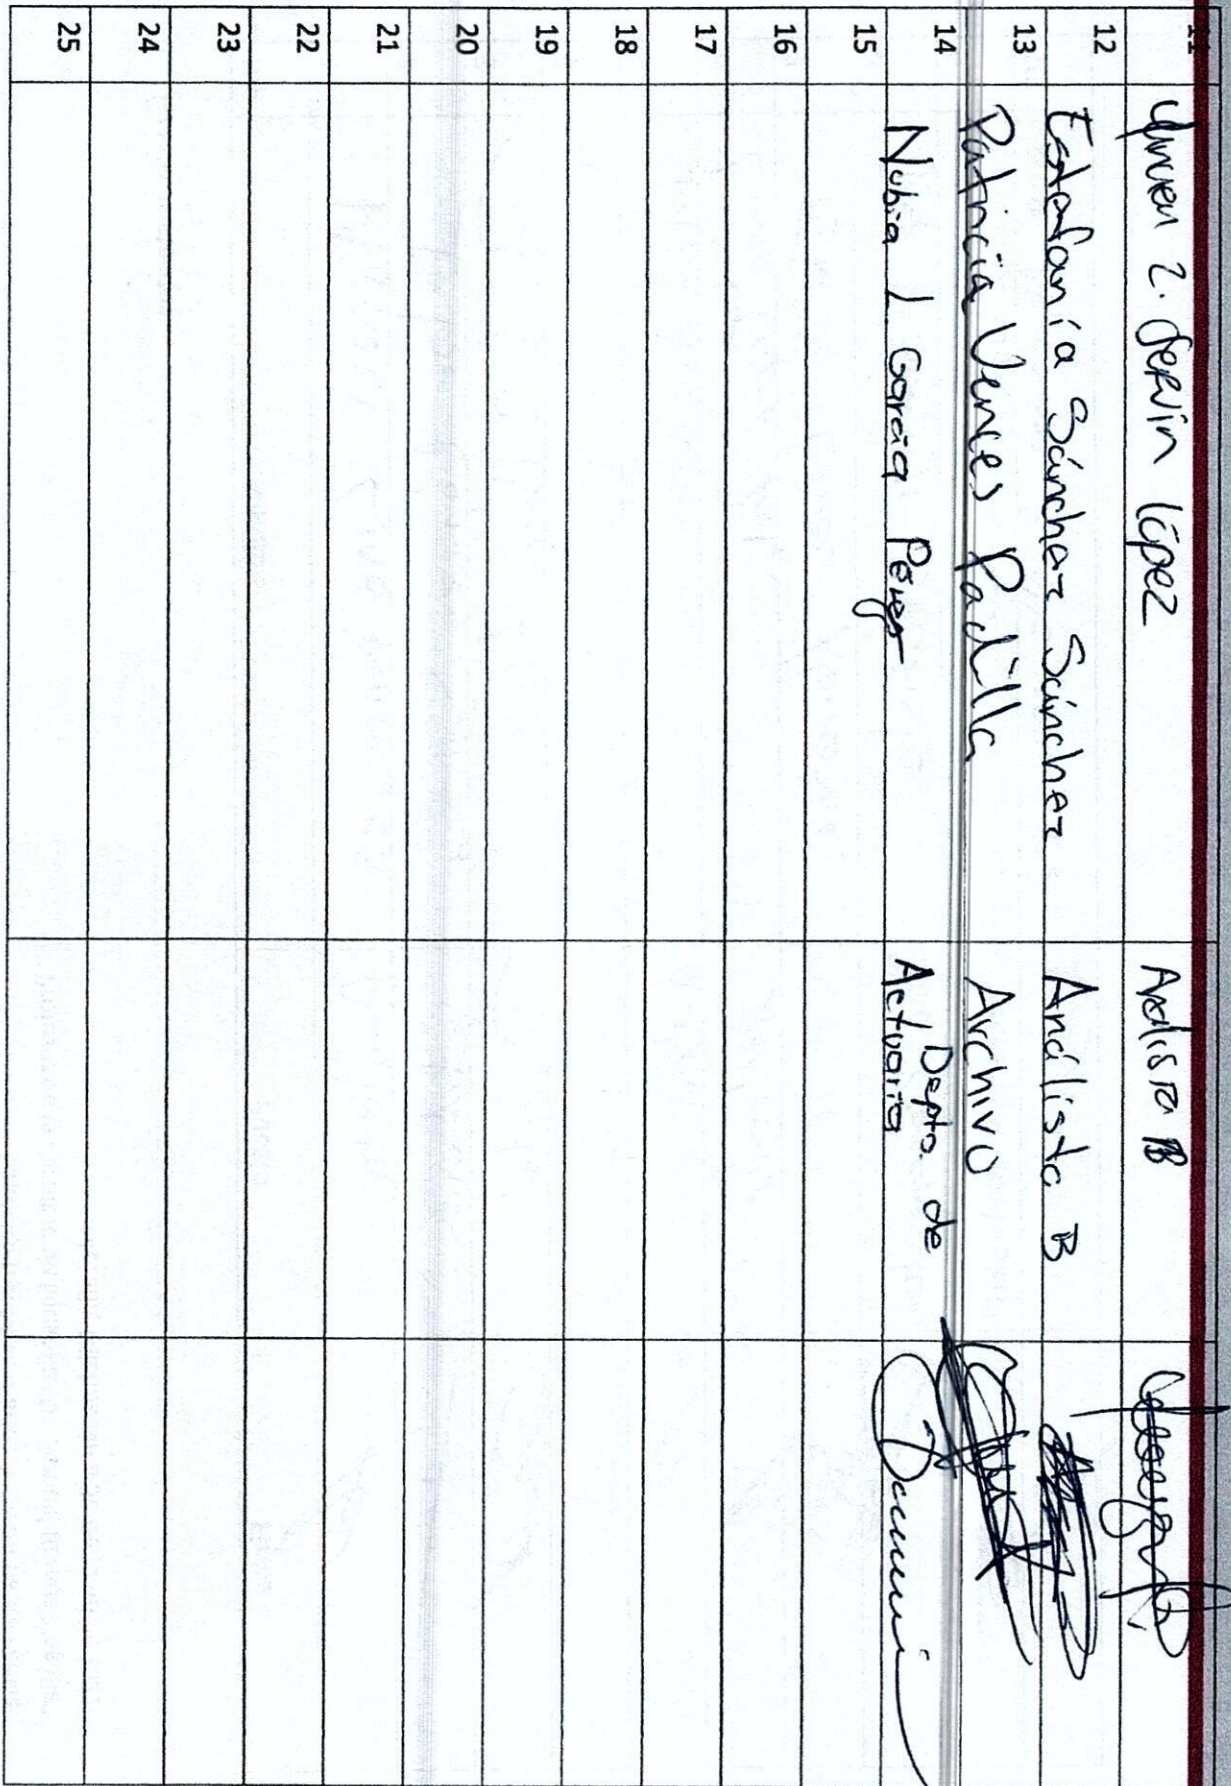 11 2. Servín López Analista B
12 Estefanía Sánchez Sánchez Análista B
13 Patricia Vences Padilla Archivo
14 Nubia L. García Pérez Depto. de
Actuaria
15
16
17
18
19
20
21
22
23
24
25